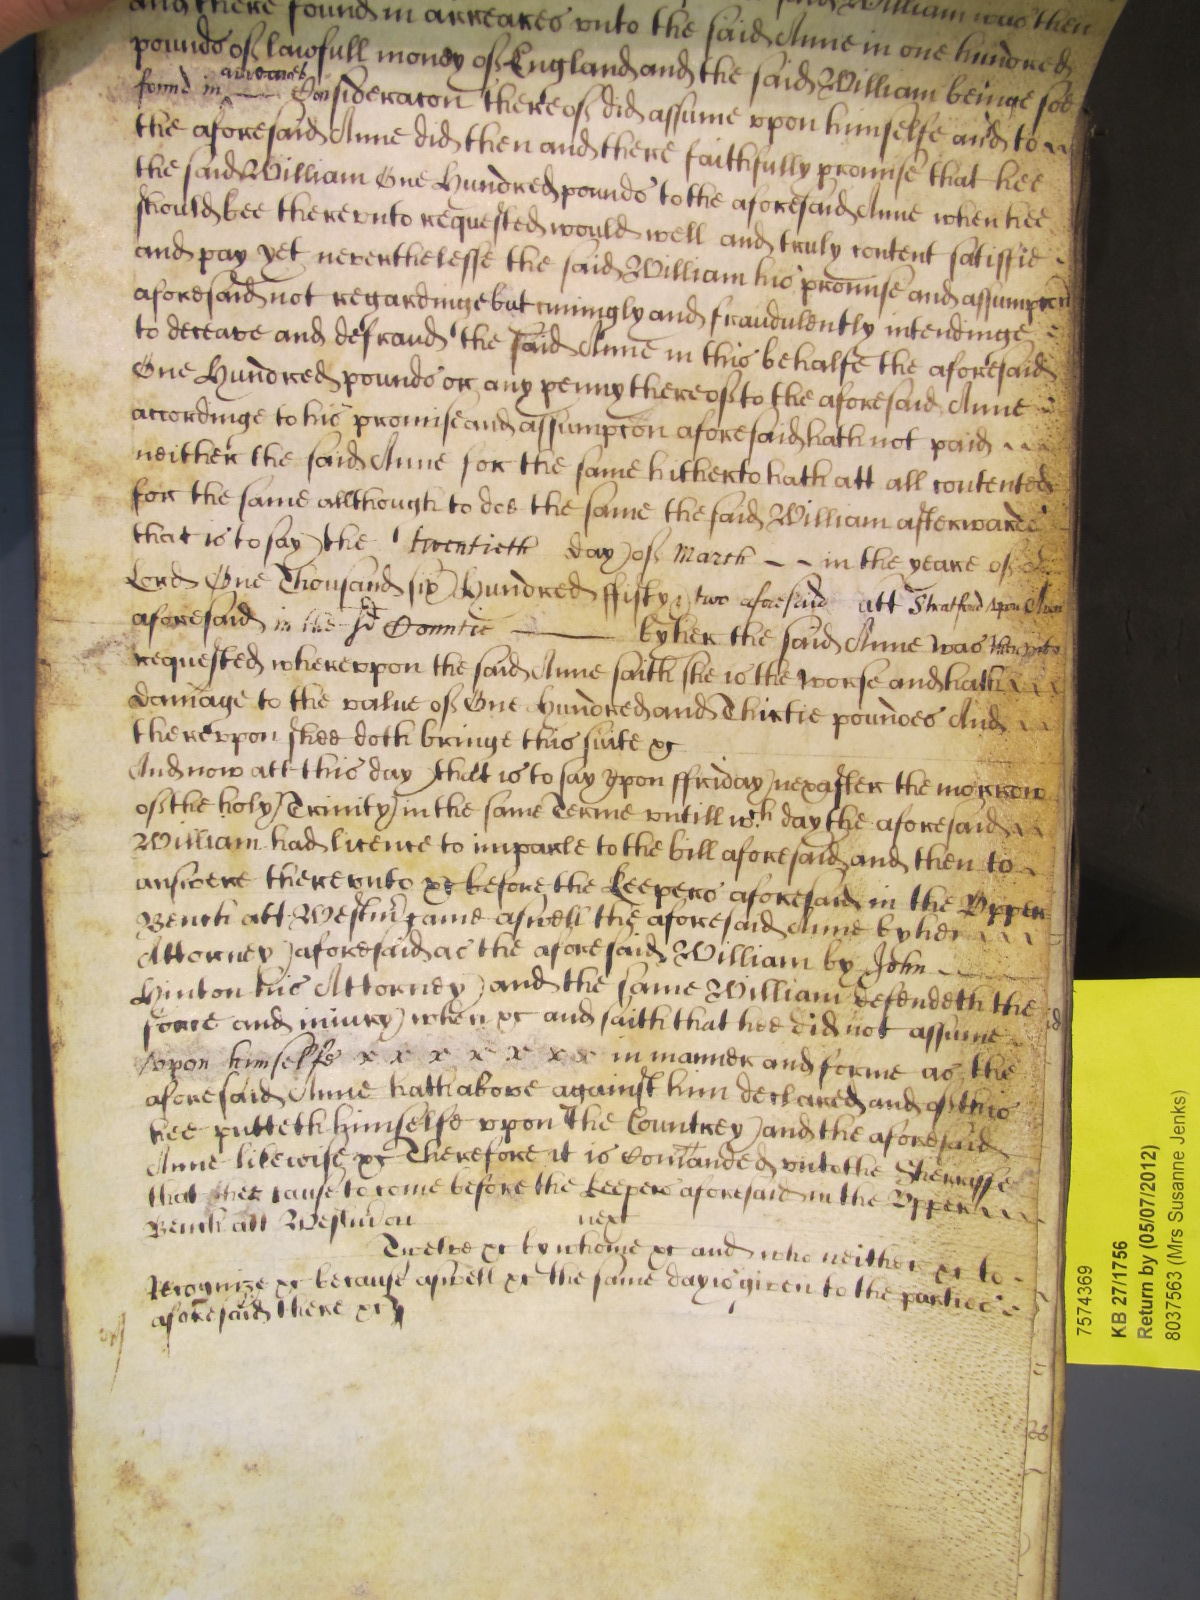 and there found in arreares vnto the said William was then
pounds of lawfull money of England and the said Anne in one hundred
found in arreares Consideracon thereof did assume vpon himselfe and to
the aforesaid Anne did then and there faithfully promise that hee
the said William One Hundred pounds to the aforesaid Anne when hee
should bee therevnto requested would well and truly content satisfie
and pay yet neverthelesse the said William his promise and assumpcon
aforesaid not regardinge but cuningly and fraudulently intendinge
to deceave and defraud the said Anne in this behalfe the aforesaid
One Hundred pounds or any penny thereof to the aforesaid Anne
accordinge to his promise and assumpcon aforesaid hath not paid
neither the said Anne for the same hitherto hath att all contented
for the same allthough to doe the same the said William afterwards
that is to say the twentieth day of March in the yeare of
Lord One Thousand six Hundred ffifty two aforesaid att Stratford vpon Avon
aforesaid in the sd Countie by her the said Anne was therevnto
requested wherevpon the said Anne saith she is the worse and hath
damage to the value of One Hundred and Thirtie pounds And
therevpon shee doth bringe this suite &c
And now att this day that is to say vpon ffriday next after the morrow
of the holy Trinity in the same Terme vntill wch day the aforesaid
William had licence to imparle to the bill aforesaid and then to
answere therevnto &c before the Keepers aforesaid in the Vpper
Bench att Westmr came aswell the aforesaid Anne by her
Attorney aforesaid as the aforesaid William by John
Hinton his Attorney and the same William defendeth the
force and injury when &c and saith that hee did not assume
vpon himselfe x x x x x x x in manner and forme as the
aforesaid Anne hath above against him declared and of this
hee putteth himselfe vpon the Countrey and the aforesaid
Anne likewise &c Therefore it is Comanded vnto the Sherriffe
that hee cause to come before the Keepers aforesaid in the Vpper
Bench att Westmr on next
Twelve &c by whome &c and who neither &c to
Recognize &c because aswell &c the same day is given to the parties
aforesaid there &c
7574369
KB 27/1756
Return by (05/07/2012)
8037563 (Mrs Susanne Jenks)